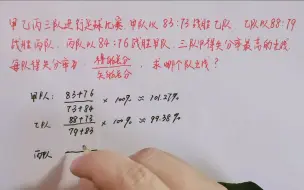 甲乙丙三队进行足球比赛,甲队以83:73战胜乙队,乙队以88:79
战胜丙队,丙队以84:76战胜甲队,三队中得失分率最高的出线
每队得失分率为:得分总和/失分总和,求哪个队出线?
甲队: 83+76/73+84 × 100% ≈ 101.27%
乙队 88+73/79+83 × 100% ≈ 99.38%
丙队